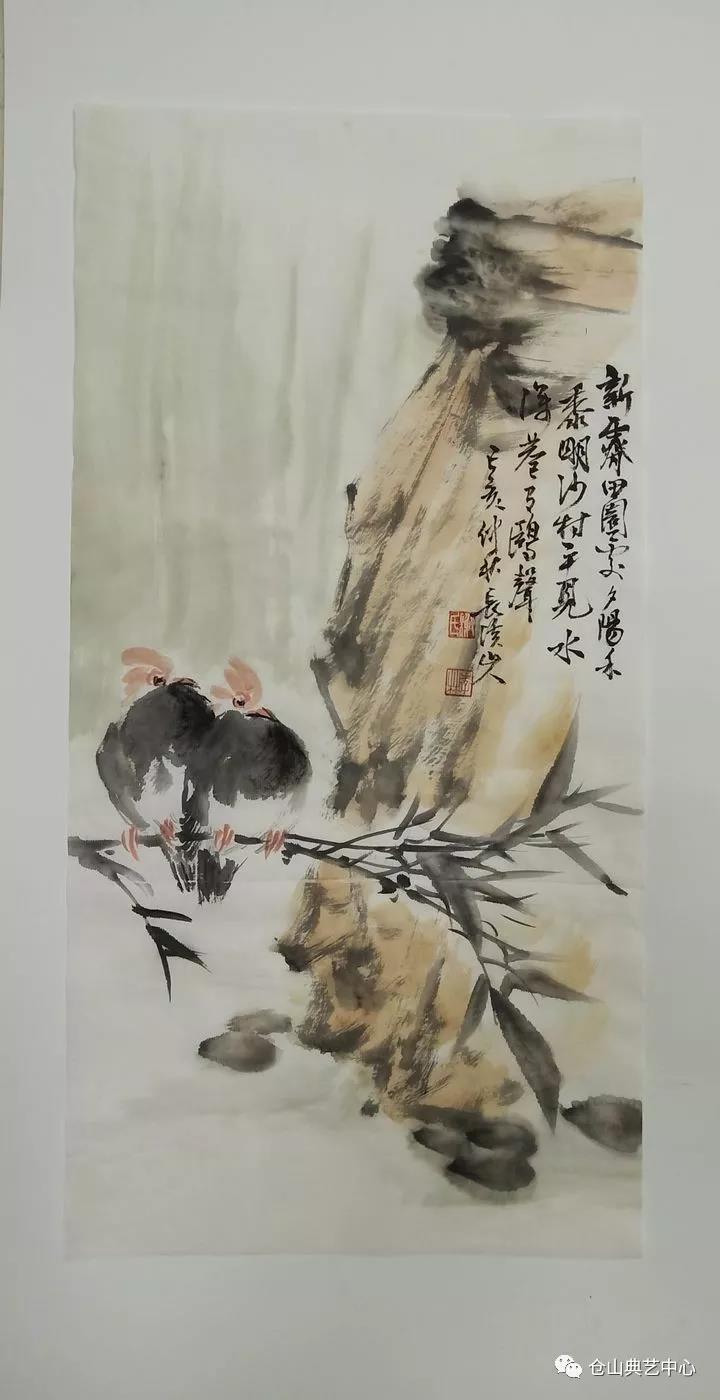 新霽田園處夕陽禾
黍明沙村平見水
深巷有鷗聲
己亥仲秋長山人
仓山典艺中心